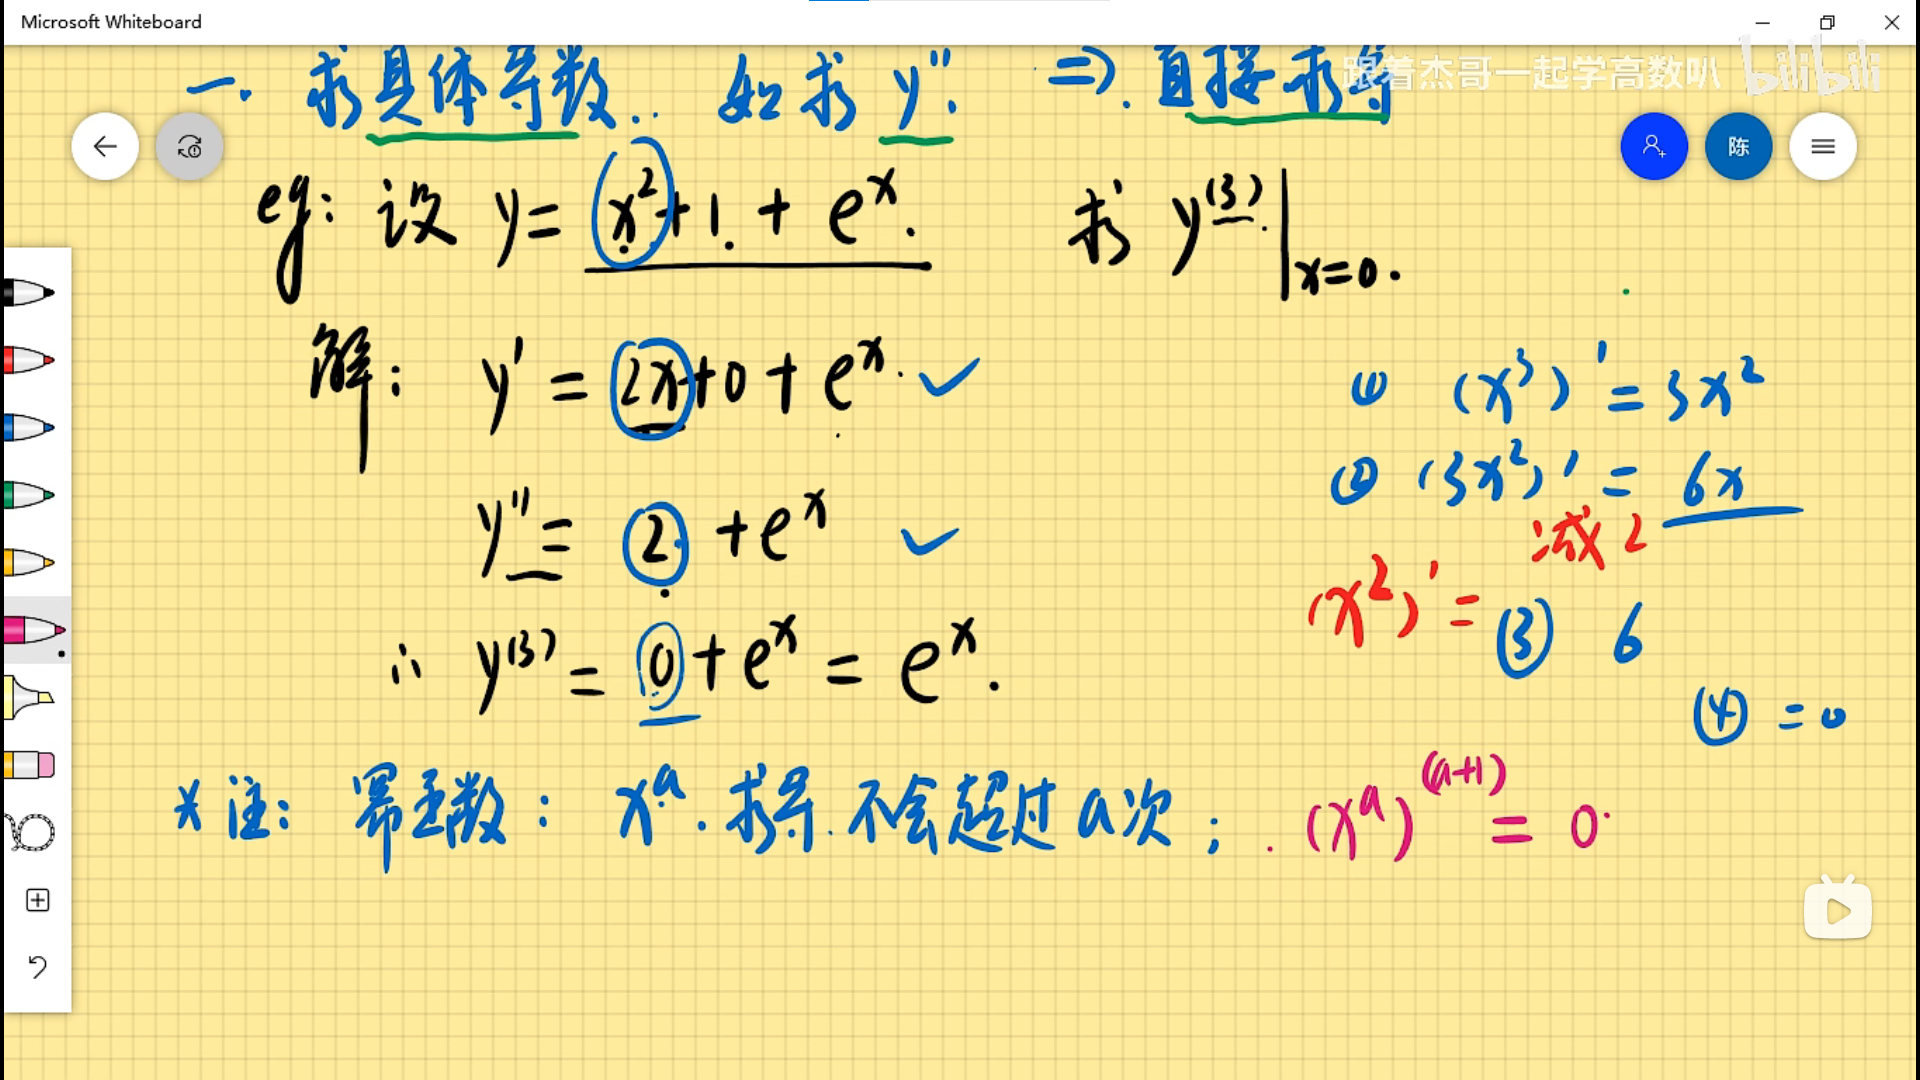 Microsoft Whiteboard
跟着杰哥一起学高数叭 bilibili
一. 求具体导数. 如求 y''. ⇒ 直接求导
陈
eg: 设 y = x²+1 + eˣ. 求 y⁽³⁾|x=0.
解: y' = 2x+0+eˣ. ✓
y'' = 2 + eˣ ✓
∴ y⁽³⁾ = 0 + eˣ = eˣ.
① (x³)' = 3x²
② (3x²)' = 6x
减2
(x²)' =
③ 6
④ = 0
*注: 幂函数: xᵃ. 求导不会超过a次; (xᵃ)⁽ᵃ⁺¹⁾ = 0.